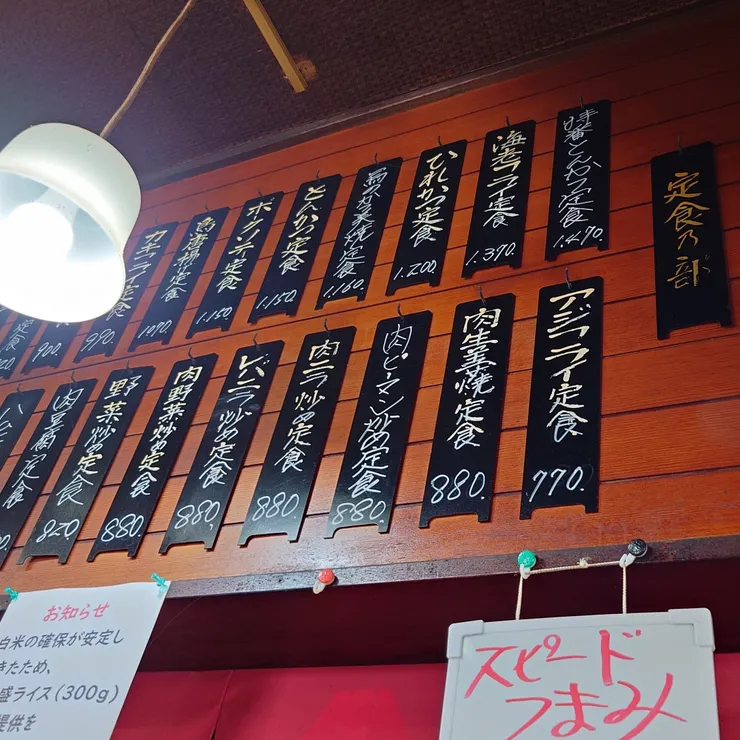 定食乃部
とんかつ定食
海老フライ定食
1.390.
ひれかつ定食
1.200.
焼定食
1.160.
とんかつ定食
1.150.
ポークソテー定食
1.150.
鳥唐揚げ定食
1090.
カキフライ定食
990.
900.
定食
アジフライ定食
770.
肉生姜焼定食
880.
肉ピーマン炒め定食
880.
肉ニラ炒め定食
880.
レバニラ炒め定食
880.
肉野菜炒め定食
880.
野菜炒め定食
880.
肉豆腐定食
820.
ハム
お知らせ
白米の確保が安定し
きたため、
盛ライス(300g)
提供を
スピード
つまみ